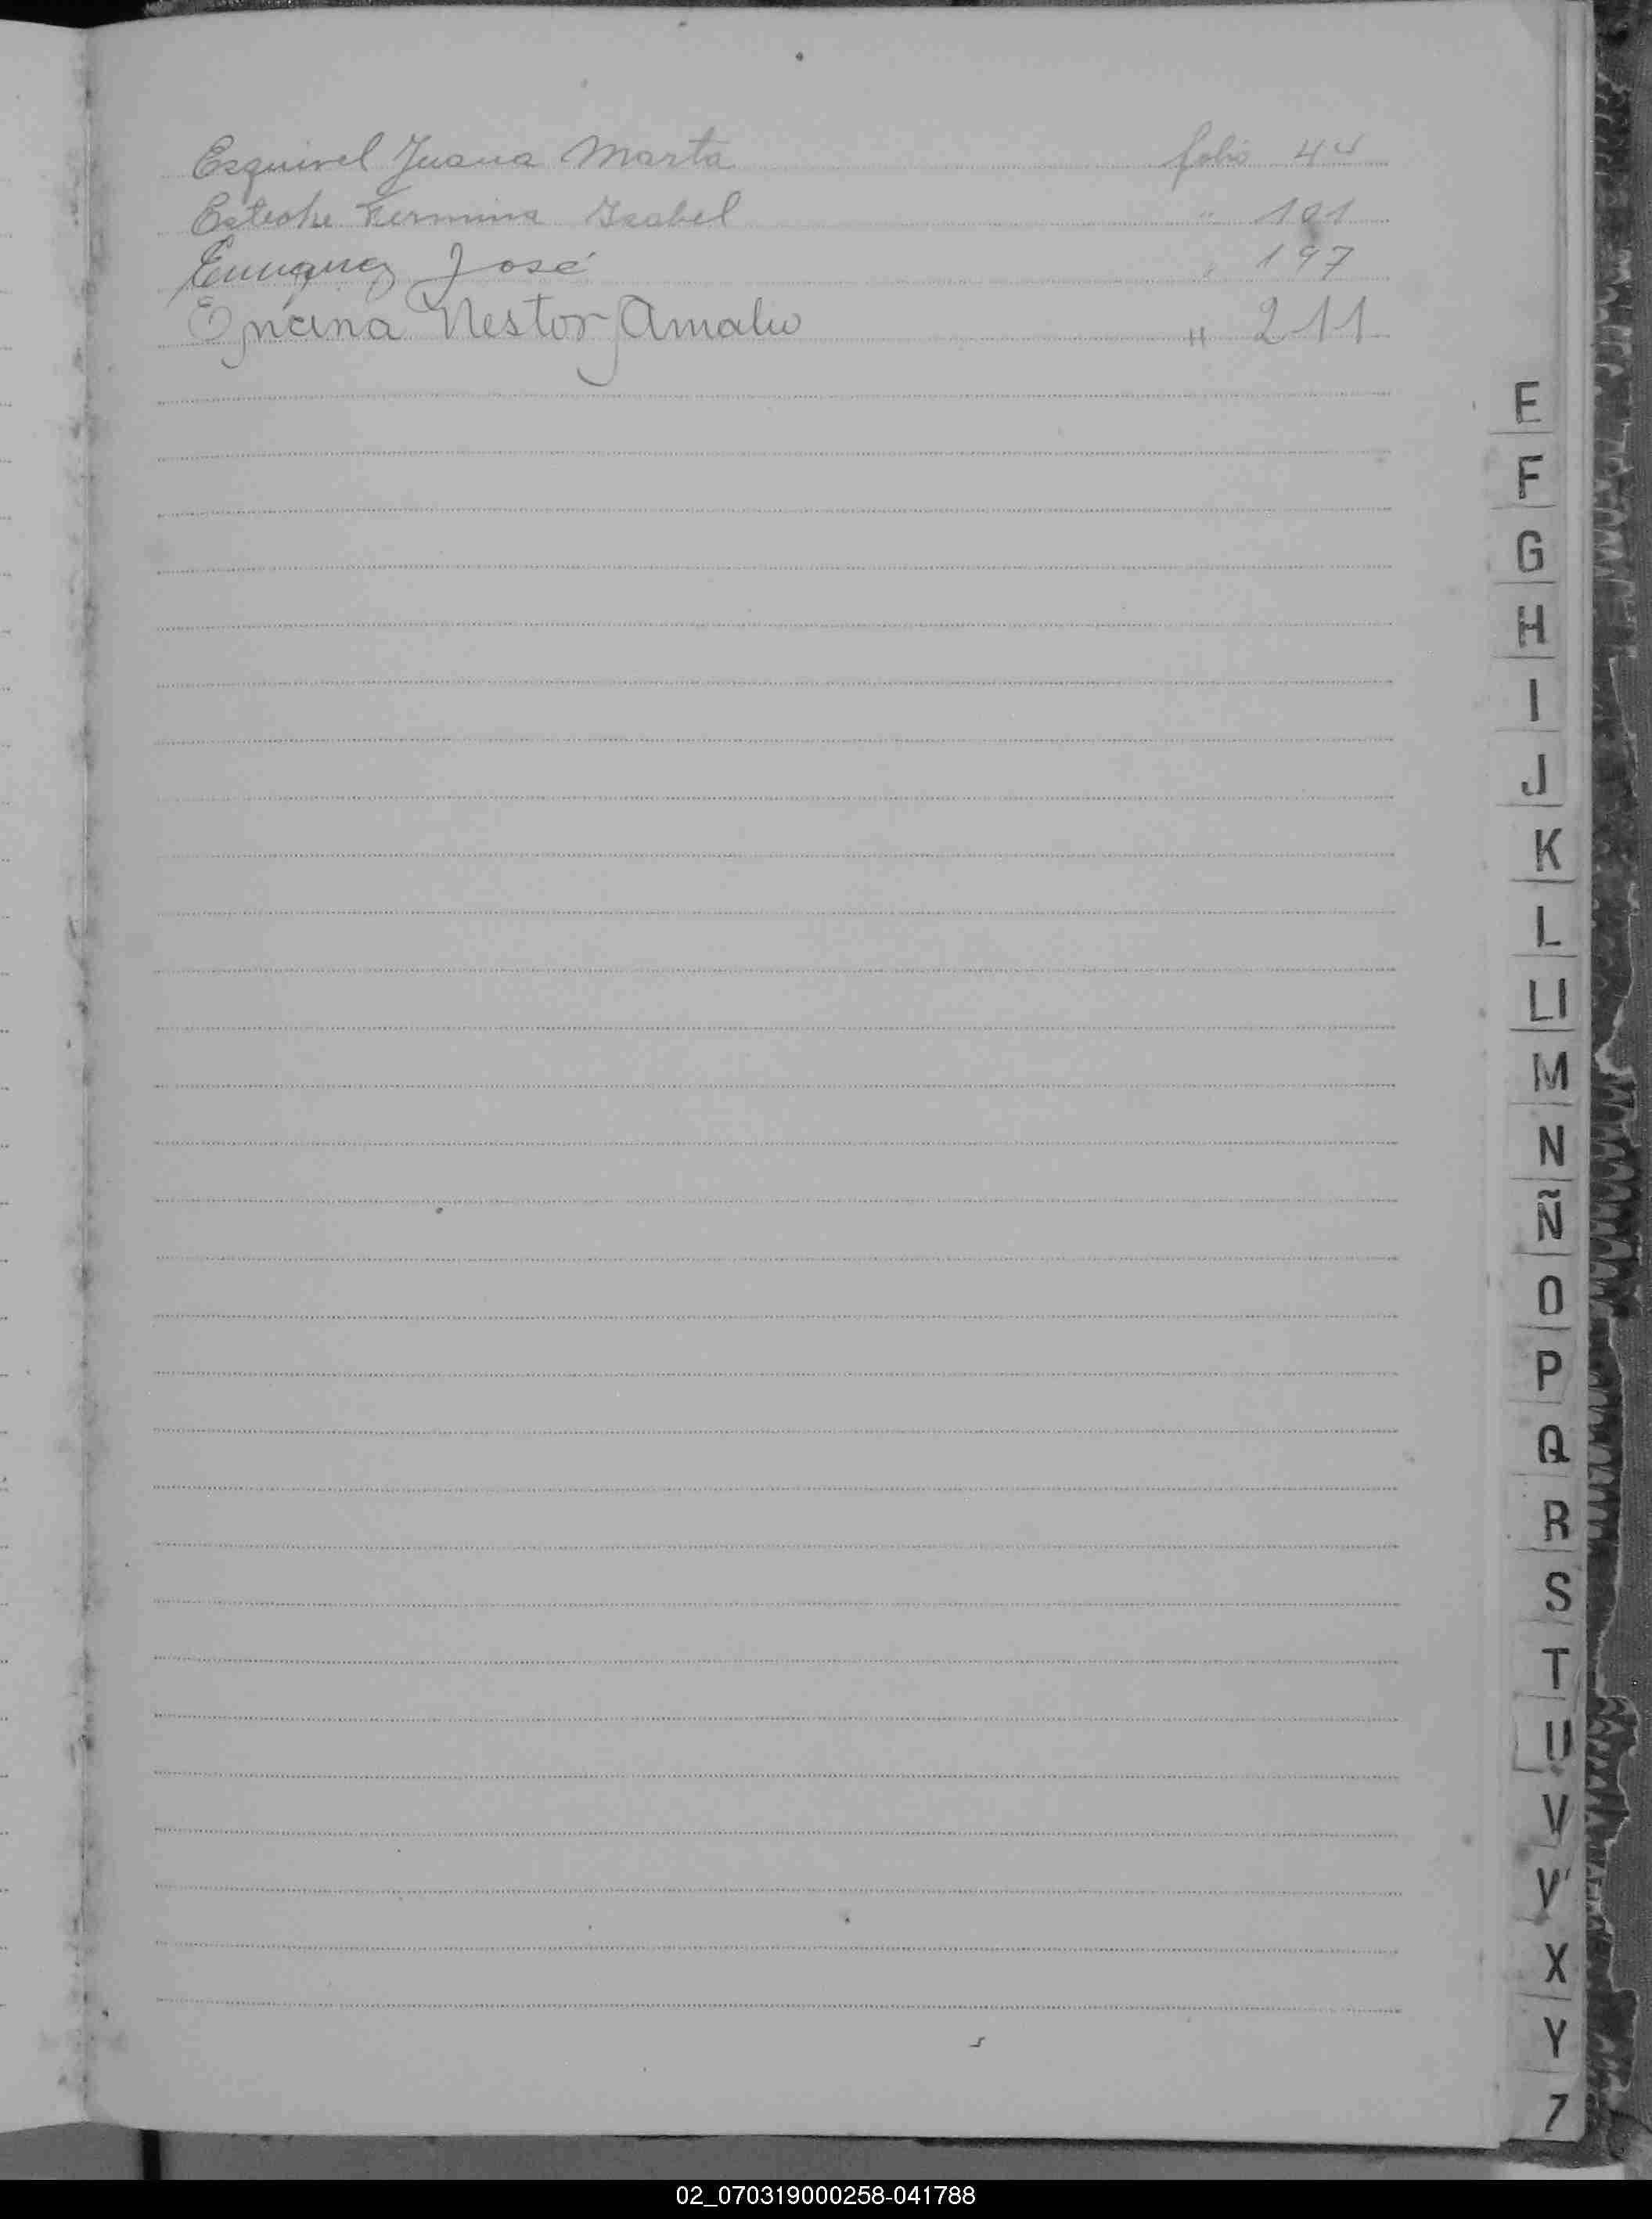 Esquivel Juana Marta folio 44
Esteche Fermina Isabel " 101
Enriquez José " 197
Nestor Amalio " 211
E
F
G
H
I
J
K
L
Ll
M
N
Ñ
O
P
Q
R
S
T
U
V
W
X
Y
Z
02_070319000258-041788